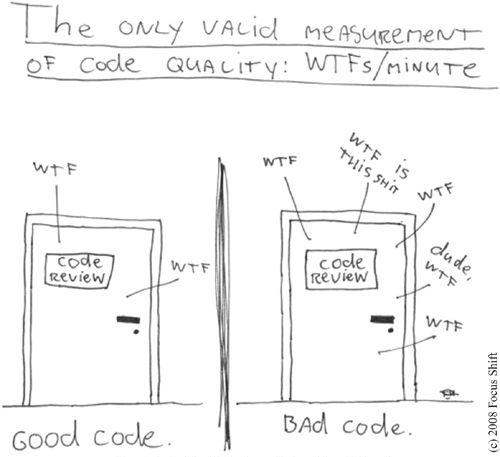 The ONLY VALID MEASUREMENT
OF Code QUALITY: WTFs/MINUTE
WTF
Code
REVIEW
WTF
GOOD Code.
WTF
WTF is
THIS SHIT
WTF
Code
REVIEW
dude,
WTF
WTF
BAD Code.
(c) 2008 Focus Shift